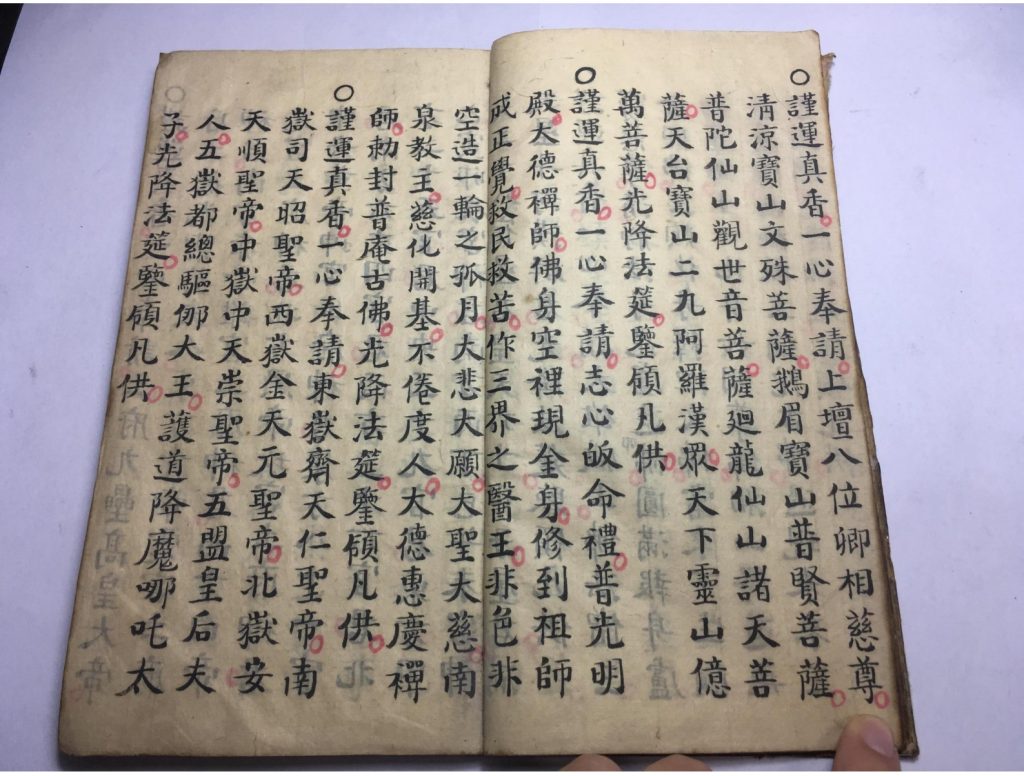 ○謹運真香一心奉請上壇八位卿相慈尊
清涼寶山文殊菩薩鵝眉寶山普賢菩薩
普陀仙山觀世音菩薩廻龍仙山諸天菩
薩天台寶山二九阿羅漢眾天下靈山億
萬菩薩光降法筵鑒領凡供
○謹運真香一心奉請志心皈命禮普光明
殿大德禪師佛身空裡現金身修到祖師
成正覺救民救苦作三界之醫王非色非
空造一輪之孤月大悲大願大聖大慈南
泉教主慈化開基不倦度人大德惠慶禪
師勅封普庵古佛光降法筵鑒領凡供
○謹運真香一心奉請東嶽齊天仁聖帝南
嶽司天昭聖帝西嶽金天元聖帝北嶽安
天順聖帝中嶽中天崇聖帝五盟皇后夫
人五嶽都總驅邪大王護道降魔哪吒太
○子光降法筵鑒領凡供